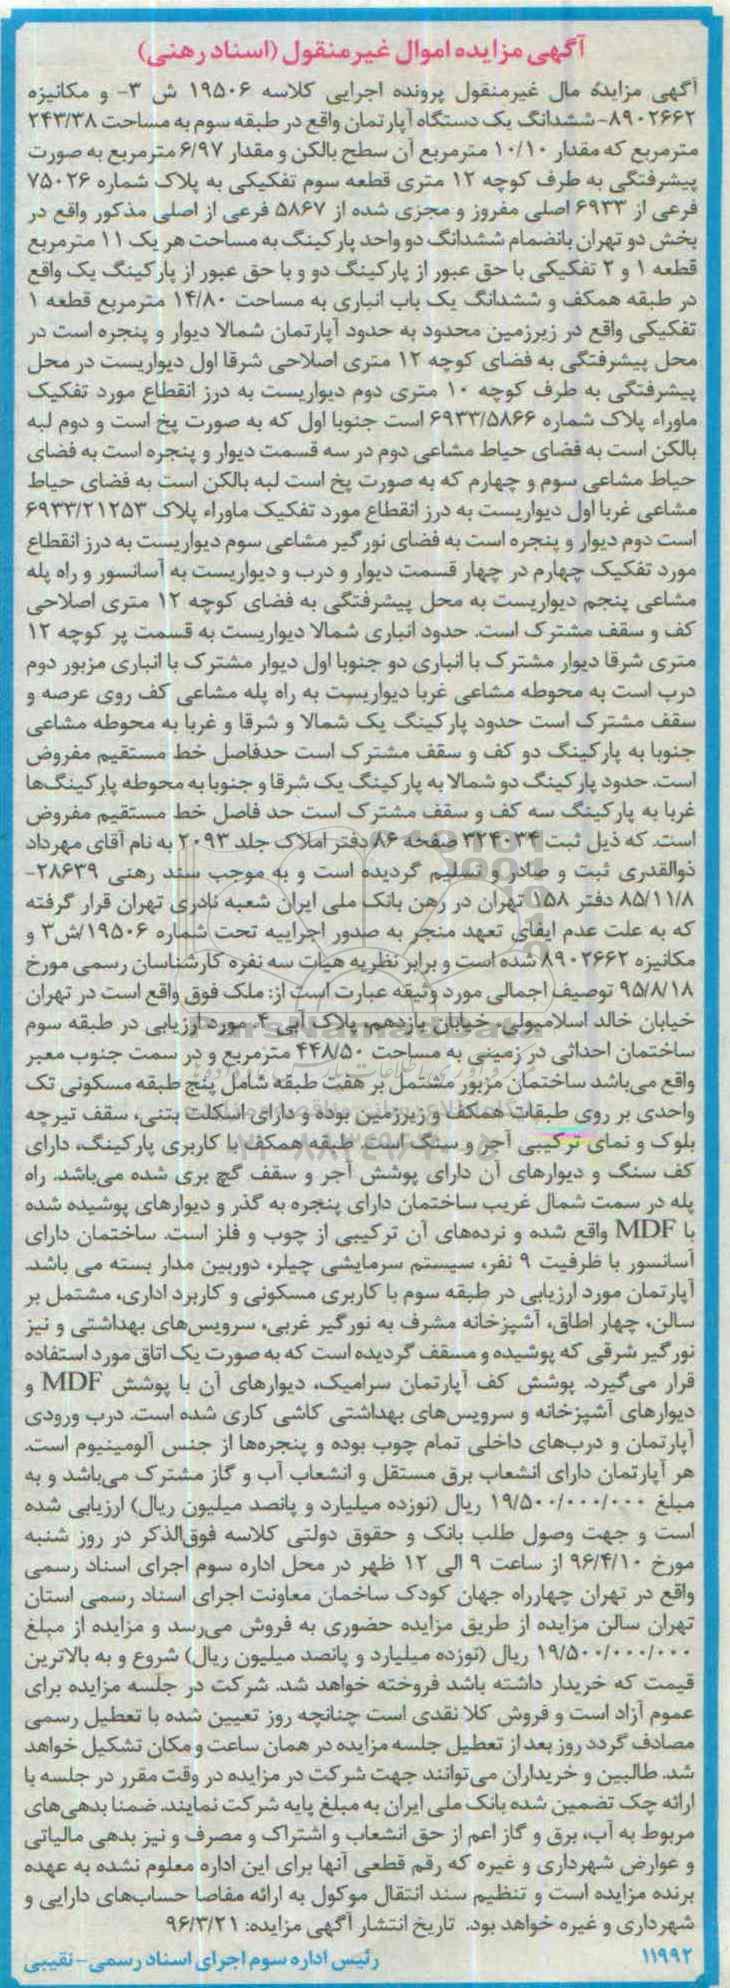 آگهی مزایده اموال غیرمنقول (اسناد رهنی)
آگهی مزایدهٔ مال غیرمنقول پرونده اجرایی کلاسه ۱۹۵۰۶ ش ۳- و مکانیزه
۸۹۰۲۶۶۲- ششدانگ یک دستگاه آپارتمان واقع در طبقه سوم به مساحت ۲۴۳/۳۸
مترمربع که مقدار ۱۰/۱۰ مترمربع آن سطح بالکن و مقدار ۶/۹۷ مترمربع به صورت
پیشرفتگی به طرف کوچه ۱۲ متری قطعه سوم تفکیکی به پلاک شماره ۷۵۰۲۶
فرعی از ۶۹۳۳ اصلی مفروز و مجزی شده از ۵۸۶۷ فرعی از اصلی مذکور واقع در
بخش دو تهران بانضمام ششدانگ دو واحد پارکینگ به مساحت هر یک ۱۱ مترمربع
قطعه ۱ و ۲ تفکیکی با حق عبور از پارکینگ دو و با حق عبور از پارکینگ یک واقع
در طبقه همکف و ششدانگ یک باب انباری به مساحت ۱۴/۸۰ مترمربع قطعه ۱
تفکیکی واقع در زیرزمین محدود به حدود آپارتمان شمالا دیوار و پنجره است در
محل پیشرفتگی به فضای کوچه ۱۲ متری اصلاحی شرقا اول دیواریست در محل
پیشرفتگی به طرف کوچه ۱۰ متری دوم دیواریست به درز انقطاع مورد تفکیک
ماوراء پلاک شماره ۶۹۳۳/۵۸۶۶ است جنوبا اول که به صورت پخ است و دوم لبه
بالکن است به فضای حیاط مشاعی دوم در سه قسمت دیوار و پنجره است به فضای
حیاط مشاعی سوم و چهارم که به صورت پخ است لبه بالکن است به فضای حیاط
مشاعی غربا اول دیواریست به درز انقطاع مورد تفکیک ماوراء پلاک ۶۹۳۳/۲۱۲۵۳
است دوم دیوار و پنجره است به فضای نورگیر مشاعی سوم دیواریست به درز انقطاع
مورد تفکیک چهارم در چهار قسمت دیوار و درب و دیواریست به آسانسور و راه پله
مشاعی پنجم دیواریست به محل پیشرفتگی به فضای کوچه ۱۲ متری اصلاحی
کف و سقف مشترک است. حدود انباری شمالا دیواریست به قسمت پر کوچه ۱۲
متری شرقا دیوار مشترک با انباری دو جنوبا اول دیوار مشترک با انباری مزبور دوم
درب است به محوطه مشاعی غربا دیواریست به راه پله مشاعی کف روی عرصه و
سقف مشترک است حدود پارکینگ یک شمالا و شرقا و غربا به محوطه مشاعی
جنوبا به پارکینگ دو کف و سقف مشترک است حدفاصل خط مستقیم مفروض
است. حدود پارکینگ دو شمالا به پارکینگ یک شرقا و جنوبا به محوطه پارکینگ‌ها
غربا به پارکینگ سه کف و سقف مشترک است حد فاصل خط مستقیم مفروض
است. که ذیل ثبت ۳۲۴۰۳۴ صفحه ۸۶ دفتر املاک جلد ۲۰۹۳ به نام آقای مهرداد
ذوالقدری ثبت و صادر و تسلیم گردیده است و به موجب سند رهنی ۲۸۶۳۹-
۸۵/۱۱/۸ دفتر ۱۵۸ تهران در رهن بانک ملی ایران شعبه نادری تهران قرار گرفته
که به علت عدم ایفای تعهد منجر به صدور اجراییه تحت شماره ۱۹۵۰۶/ش۳ و
مکانیزه ۸۹۰۲۶۶۲ شده است و برابر نظریه هیات سه نفره کارشناسان رسمی مورخ
۹۵/۸/۱۸ توصیف اجمالی مورد وثیقه عبارت است از: ملک فوق واقع است در تهران
خیابان خالد اسلامبولی، خیابان یازدهم، پلاک آبی ۴. مورد ارزیابی در طبقه سوم
ساختمان احداثی در زمینی به مساحت ۴۴۸/۵۰ مترمربع و در سمت جنوب معبر
واقع می‌باشد ساختمان مزبور مشتمل بر هفت طبقه شامل پنج طبقه مسکونی تک
واحدی بر روی طبقات همکف و زیرزمین بوده و دارای اسکلت بتنی، سقف تیرچه
بلوک و نمای ترکیبی آجر و سنگ است طبقه همکف با کاربری پارکینگ، دارای
کف سنگ و دیوارهای آن دارای پوشش آجر و سقف گچ بری شده می‌باشد. راه
پله در سمت شمال غریب ساختمان دارای پنجره به گذر و دیوارهای پوشیده شده
با MDF واقع شده و نرده‌های آن ترکیبی از چوب و فلز است. ساختمان دارای
آسانسور با ظرفیت ۹ نفر، سیستم سرمایشی چیلر، دوربین مدار بسته می باشد.
آپارتمان مورد ارزیابی در طبقه سوم با کاربری مسکونی و کاربرد اداری، مشتمل بر
سالن، چهار اطاق، آشپزخانه مشرف به نورگیر غربی، سرویس‌های بهداشتی و نیز
نورگیر شرقی که پوشیده و مسقف گردیده است که به صورت یک اتاق مورد استفاده
قرار می‌گیرد. پوشش کف آپارتمان سرامیک، دیوارهای آن با پوشش MDF و
دیوارهای آشپزخانه و سرویس‌های بهداشتی کاشی کاری شده است. درب ورودی
آپارتمان و درب‌های داخلی تمام چوب بوده و پنجره‌ها از جنس آلومینیوم است.
هر آپارتمان دارای انشعاب برق مستقل و انشعاب آب و گاز مشترک می‌باشد و به
مبلغ ۱۹/۵۰۰/۰۰۰/۰۰۰ ریال (نوزده میلیارد و پانصد میلیون ریال) ارزیابی شده
است و جهت وصول طلب بانک و حقوق دولتی کلاسه فوق‌الذکر در روز شنبه
مورخ ۹۶/۴/۱۰ از ساعت ۹ الی ۱۲ ظهر در محل اداره سوم اجرای اسناد رسمی
واقع در تهران چهارراه جهان کودک ساخمان معاونت اجرای اسناد رسمی استان
تهران سالن مزایده از طریق مزایده حضوری به فروش می‌رسد و مزایده از مبلغ
۱۹/۵۰۰/۰۰۰/۰۰۰ ریال (نوزده میلیارد و پانصد میلیون ریال) شروع و به بالاترین
قیمت که خریدار داشته باشد فروخته خواهد شد. شرکت در جلسه مزایده برای
عموم آزاد است و فروش کلا نقدی است چنانچه روز تعیین شده با تعطیل رسمی
مصادف گردد روز بعد از تعطیل جلسه مزایده در همان ساعت و مکان تشکیل خواهد
شد. طالبین و خریداران می‌توانند جهت شرکت در مزایده در وقت مقرر در جلسه با
ارائه چک تضمین شده بانک ملی ایران به مبلغ پایه شرکت نمایند. ضمنا بدهی‌های
مربوط به آب، برق و گاز اعم از حق انشعاب و اشتراک و مصرف و نیز بدهی مالیاتی
و عوارض شهرداری و غیره که رقم قطعی آنها برای این اداره معلوم نشده به عهده
برنده مزایده است و تنظیم سند انتقال موکول به ارائه مفاصا حساب‌های دارایی و
شهرداری و غیره خواهد بود. تاریخ انتشار آگهی مزایده: ۹۶/۳/۲۱
۱۱۹۹۲ رئیس اداره سوم اجرای اسناد رسمی- نقیبی